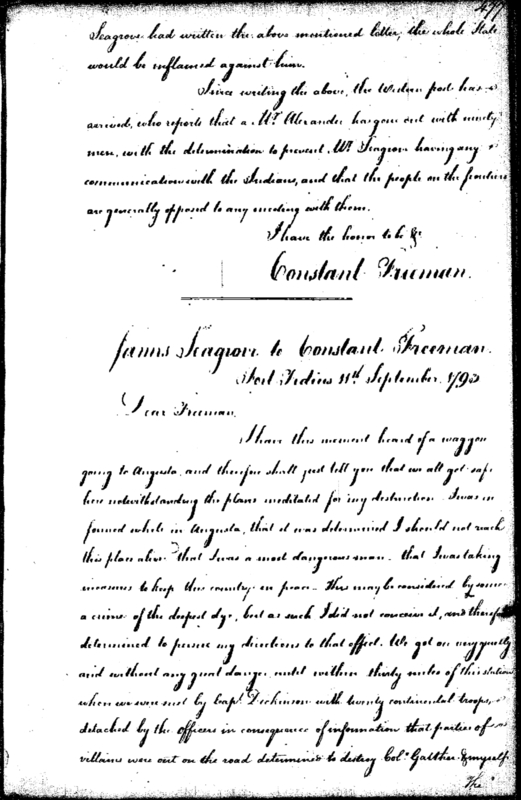 477
Seagrove had written the above mentioned letter, the whole State
would be inflamed against him.
Since writing the above, the Western post has
arrived, who reports that a Mr Alexander has gone out with ninety
men, with the determination to prevent Mr Seagrove having any
communication with the Indians, and that the people on the frontiers
are generally opposed to any meeting with them.
I have the honor to be &c
Constant Freeman.
James Seagrove to Constant Freeman.
Fort Fidius 11th September 1793
Dear Freeman,
I have this moment heard of a waggon
going to Augusta, and therefore shall just tell you that we all got safe
here notwithstanding the plans meditated for my destruction. I was in
formed while in Augusta, that it was determined I should not reach
this place alive that I was a most dangerous man. that I was taking
measures to keep this country in peace. This may be considered by some
a crime of the deepest dye, but as such I did not conceive it, and therefore
determined to pursue my directions to that effect. We got on very quietly
and without any great danger until within thirty miles of this station
when we were met by Capt Dickinson with twenty continental troops,
detached by the officers in consequence of information that parties of
villains were out on the road determined to destroy Colo. Gaither & myself
The